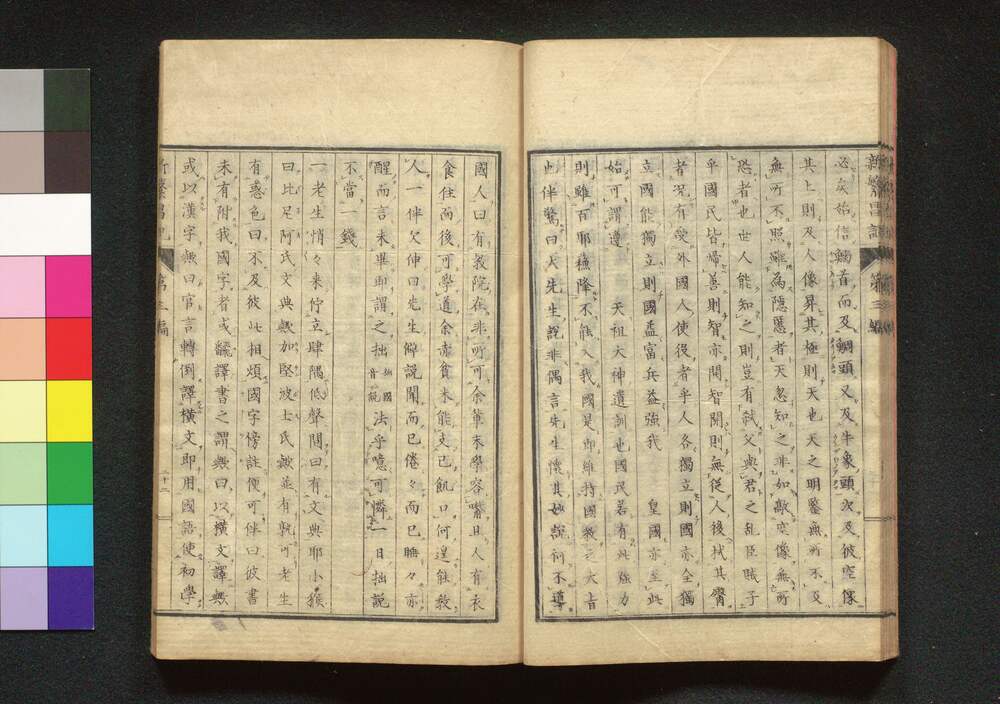 新繁昌記 第三編
必矣始信鯛首而及鯛頭又及牛象頭次及彼空像
其上則及人像昇其極則天也天之明鑒無所不及
無所不照雖為隱惡者天忽知之非如敵空像無所
恐者也世人能知之則豈有弑父與君之亂臣賊子
乎國民皆歸善則智亦開智開則無從人後拭其臀
者況有受外國人使役者乎人各獨立則國亦全獨
立國能獨立則國益富兵益強我 皇國亦至此
始可謂遵 天祖大神遺訓也國民若有此強力
則雖百耶穌隆不能入我國是即維持國教之大旨
此伴驚曰天先生說非偶言先生懷其妙說何不導
國人曰有教院在非所可余輩未學容嘴且人有衣
食住而後可學道余赤貧未能支己飢口何遑能教
人一伴欠伸曰先生僻說聞而已倦々而已睡々亦
醒而言未畢即謂之拙法乎噫可憐一日拙說
拙國音說
不當一錢
一老生悄々来佇立肆隅低聲問曰有文典耶小猴
曰比足阿氏文典歟加堅波士氏歟並有孰可老生
有惑色曰不及彼此相煩國字傍註便可伴曰彼書
未有附我國字者或飜譯書之謂歟曰以橫文譯歟
或以漢字歟曰官言轉倒譯橫文即用國語使初學
新繁昌記 第三編